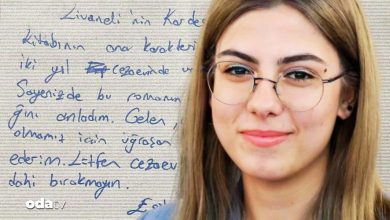 Livaneli'nin Kardeş
kitabının ana karakteri
iki yıl cezaevinde
Sayenizde bu romanın
ğını anladım. Gelen,
olmamız için uğraşan
ederim. Lütfen cezaev
dahi bırakmayın.
odatv